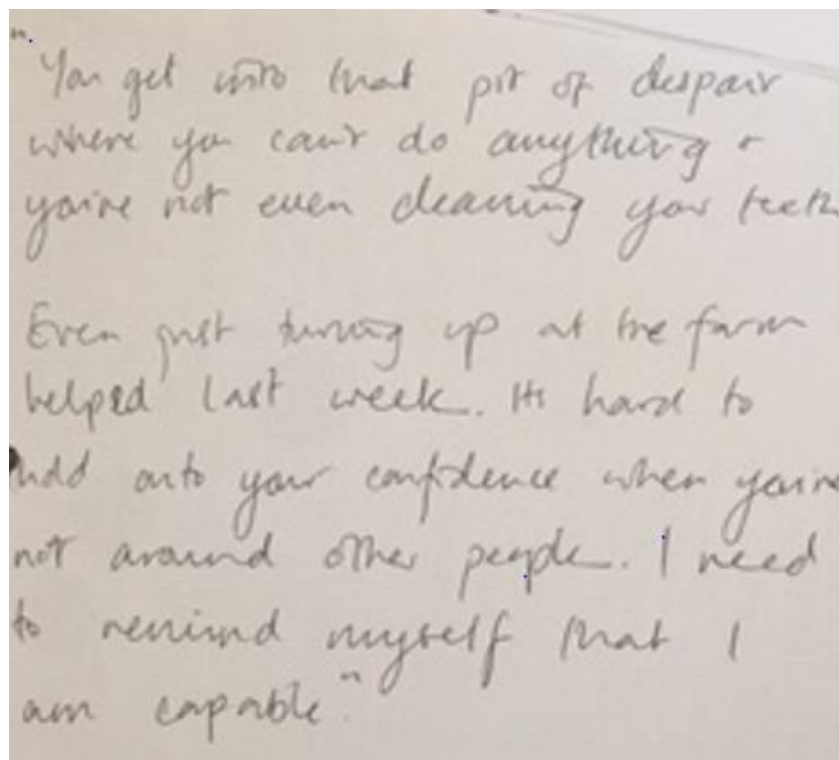 "You get into that pit of despair
where you can't do anything +
you're not even cleaning your teeth
Even just turning up at the farm
helped last week. It's hard to
hold onto your confidence when you're
not around other people. I need
to remind myself that I
am capable".